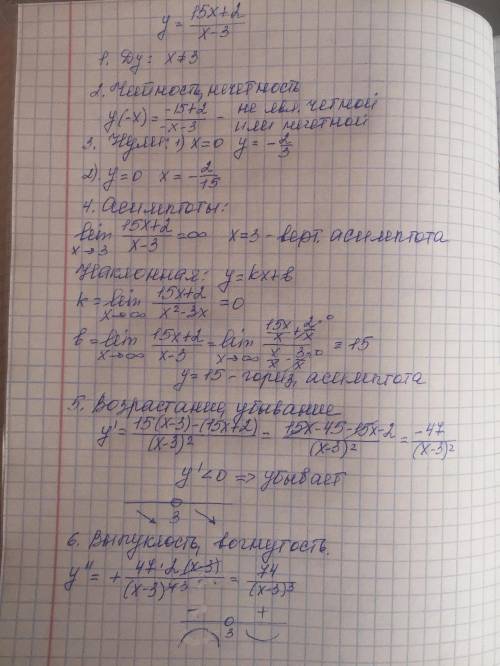 y = (15x+2)/(x-3)
1. Dy: x≠3
2. Четность, нечетность
y(-x) = (-15+2)/(-x-3) - не явл. четной
или нечетной
3. Нули: 1) x=0 y = -2/3
2) y=0 x = -2/15
4. Асимптоты:
lim x→3 (15x+2)/(x-3) = ∞ x=3 - верт. асимптота
Наклонная: y=kx+b
k = lim x→∞ (15x+2)/(x²-3x) = 0
b = lim x→∞ (15x+2)/(x-3) = lim x→∞ (15x/x + 2/x→0)/(x/x - 3/x→0) = 15
y=15 - гориз. асимптота
5. Возрастание, убывание
y' = (15(x-3)-(15x+2))/(x-3)² = (15x-45-15x-2)/(x-3)² = -47/(x-3)²
y'<0 => убывает
3
6. Выпуклость, вогнутость.
y'' = + (47·2(x-3))/(x-3)⁴³ = 74/(x-3)³
- +
3